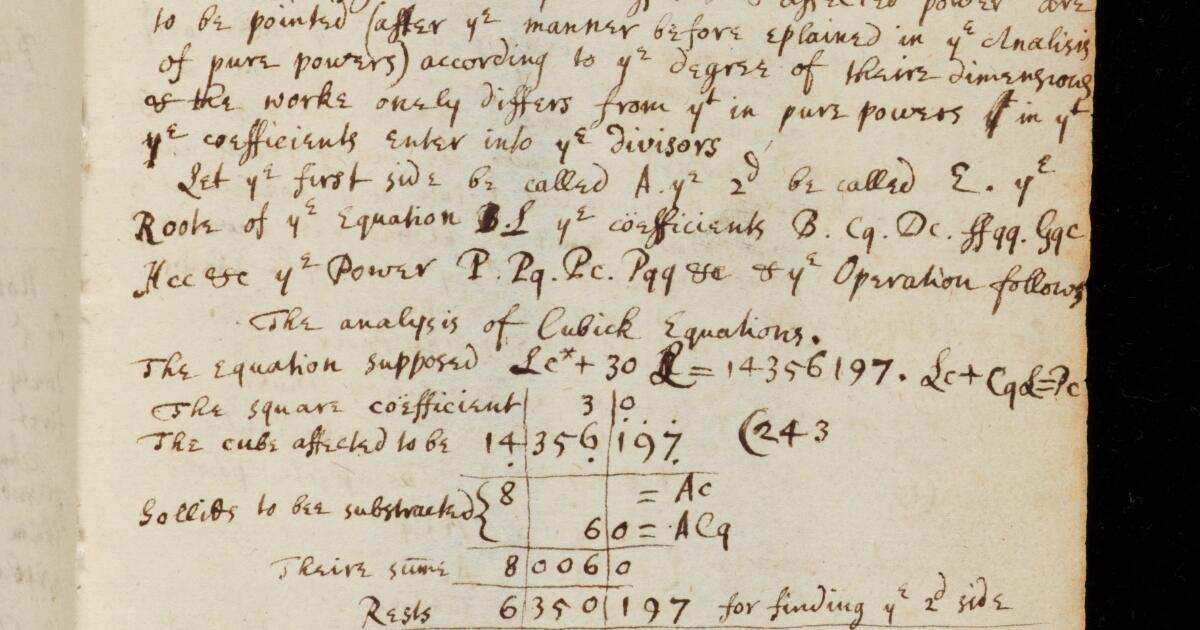 affected power are
to be pointed (after yᵉ manner before eplained in yᵉ Analisis
of pure powers) according to yᵉ degree of theire dimensions
& the worke onely differs from yᵗ in pure powers in yᵗ
yᵉ coefficients enter into yᵉ divisors
Let yᵉ first side be called A. yᵉ 2ᵈ be called E. yᵉ
Roote of yᵉ Equation L yᵉ coëfficients B. Cq. Dc. ffqq. Gqc
Hcc &c yᵉ Power P. Pq. Pc. Pqq &c & yᵉ Operation follows
The analysis of Cubick Equations.
The equation supposed Lc*+ 30 L = 14356197. Lc+CqL=Pc
The square coëfficient| 3|0
The cube affected to be 14|356|197 (243
Sollids to bee substracted{8| | = Ac
6|0 = ACq
Theire sūme 8|006|0
Rests 6|350|197 for finding yᵉ 2ᵈ side